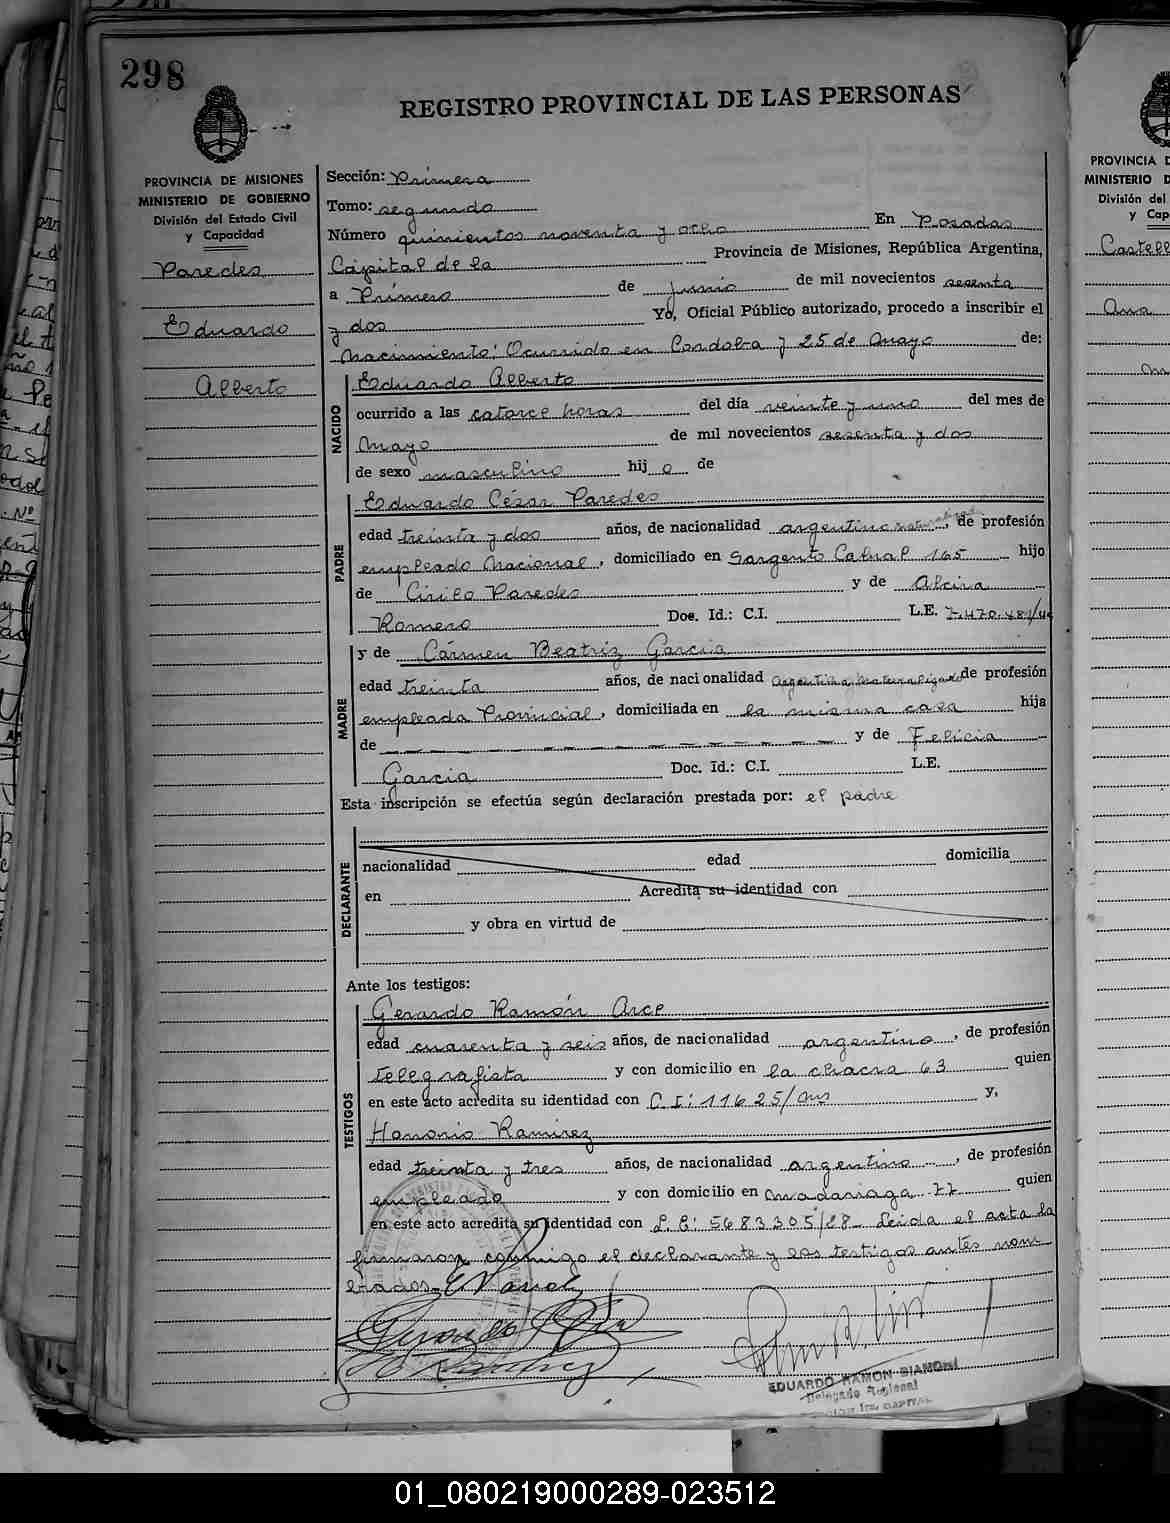 298
REGISTRO PROVINCIAL DE LAS PERSONAS
PROVINCIA DE MISIONES
MINISTERIO DE GOBIERNO
División del Estado Civil
y Capacidad
Paredes
Eduardo
Alberto
Sección: Primera
Tomo: segundo
Número quinientos noventa y ocho En Posadas
Capital de la Provincia de Misiones, República Argentina,
a Primero de junio de mil novecientos sesenta
y dos Yo, Oficial Público autorizado, procedo a inscribir el
Nacimiento: Ocurrido en Cordoba y 25 de Mayo de:
NACIDO
Eduardo Alberto
ocurrido a las catorce horas del día veinte y uno del mes de
Mayo de mil novecientos sesenta y dos
de sexo masculino hij o de
PADRE
Eduardo César Paredes
edad treinta y dos años, de nacionalidad argentino de profesión
empleado Nacional, domiciliado en Sargento Cabral 165 hijo
de Cirilo Paredes y de Alcira
Romero Doc. Id.: C.I. L.E. 7.470.481/
MADRE
y de Carmen Beatriz Garcia
edad treinta años, de nacionalidad argentina de profesión
empleada Provincial, domiciliada en la misma casa hija
de — — — — — — — — — — y de Felicia
Garcia Doc. Id.: C.I. L.E.
Esta inscripción se efectúa según declaración prestada por: el padre
DECLARANTE
nacionalidad edad domicilia
en Acredita su identidad con
y obra en virtud de
Ante los testigos:
TESTIGOS
Gerardo Ramón Arce
edad cuarenta y seis años, de nacionalidad argentino, de profesión
telegrafista y con domicilio en la chacra 63 quien
en este acto acredita su identidad con C.I: 11625/Mns y,
Honorio Ramirez
edad treinta y tres años, de nacionalidad argentino, de profesión
empleado y con domicilio en Madariaga 77 quien
en este acto acredita su identidad con L.E: 5683305/28- Leida el acta la
firmaron conmigo el declarante y los testigos antes nom-
brados.
EDUARDO RAMON BIANCHI
Delegado Regional
CAPITAL
PROVINCIA D
MINISTERIO D
División del
y Cap
Castell
Ana
01_080219000289-023512